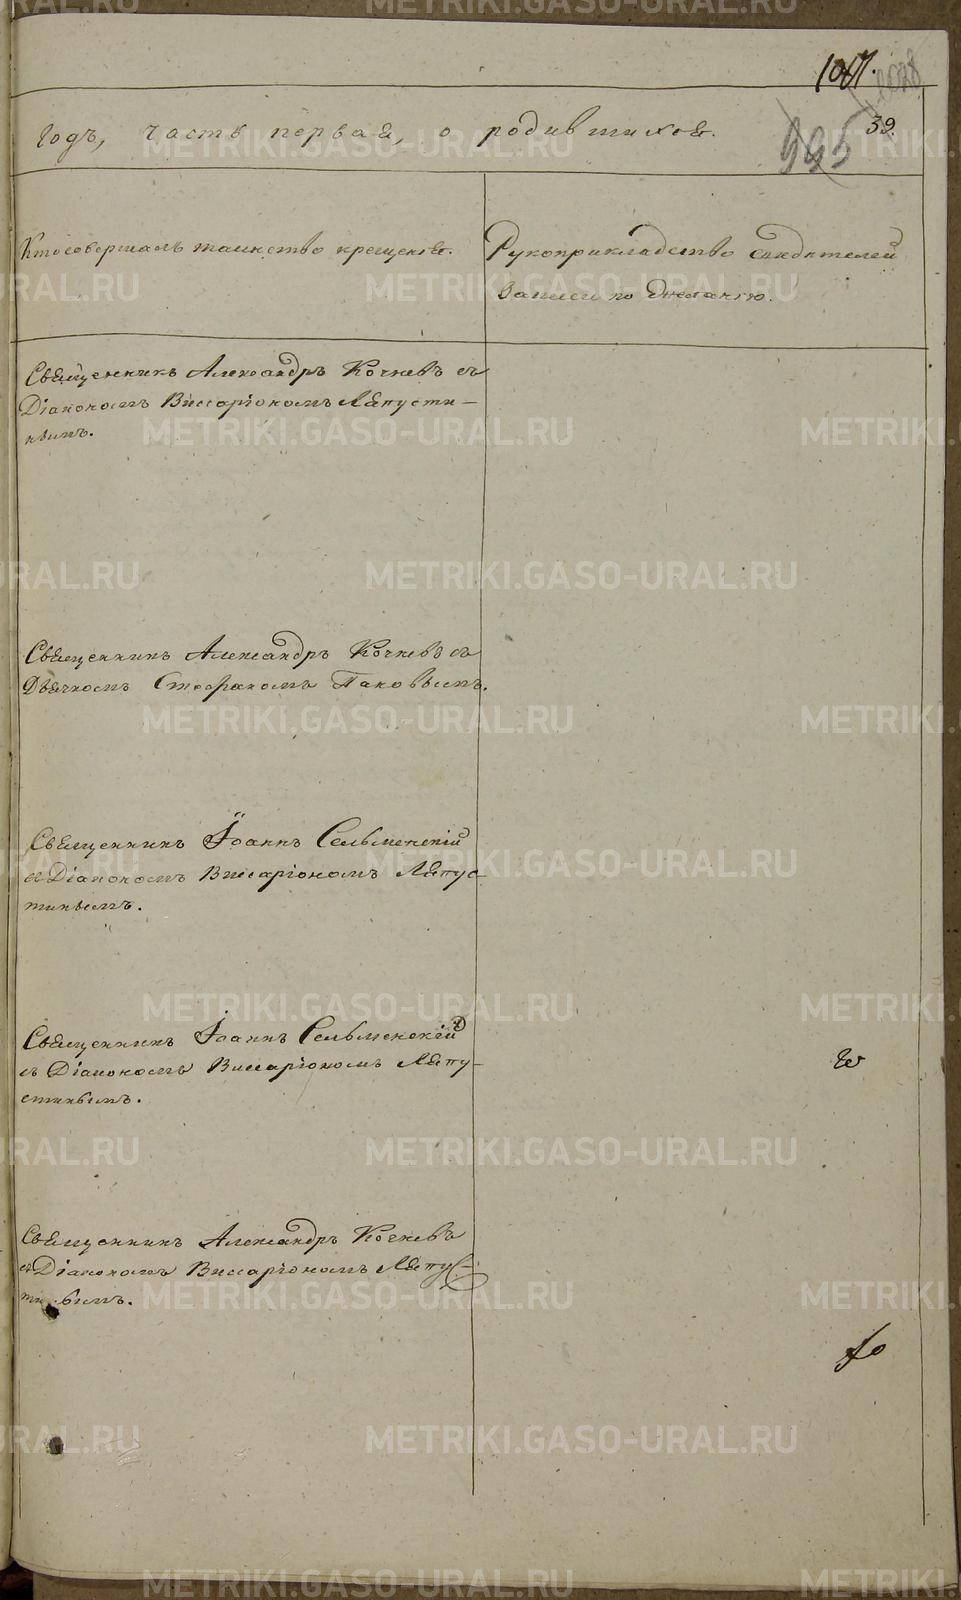 39.
годъ, часть первая, о родившихся.
Кто совершалъ таинство крещенія.
Рукоприкладство свидѣтелей
записи по желанію.
Священникъ Александръ Кочневъ съ
Діакономъ Виссаріономъ Ляпусти-
нымъ.
Священникъ Александръ Кочневъ съ
Дьячкомъ Стефаномъ
Священникъ Іоаннъ Сельменскій
съ Діакономъ Виссаріономъ Ляпус
тинымъ.
Священникъ Іоаннъ Сельменскій
съ Діакономъ Виссаріономъ Ляпу-
стинымъ.
Священникъ Александръ Кочневъ
съ Діакономъ Виссаріономъ Ляпус-
METRIKI.GASO-URAL.RU